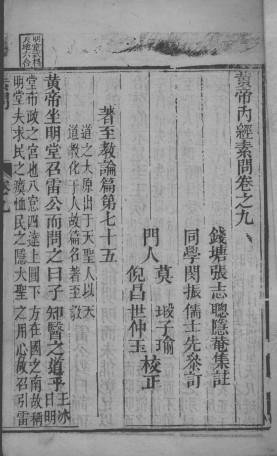 黃帝內經素問卷之九
錢塘張志聰隱菴集註
同學閔振儒士先參訂
門人
莫 瑕子瑜
倪昌世仲玉
校正
著至教論篇第七十五
道之大原出于天聖人以天
道教化于人故篇名著至教
黃帝坐明堂召雷公而問之曰子知醫之道乎
王冰
曰明
堂布政之宮也八窗四達上圓下方在國之南故稱
明堂夫求民之瘼恤民之隱大聖之用心故召雷